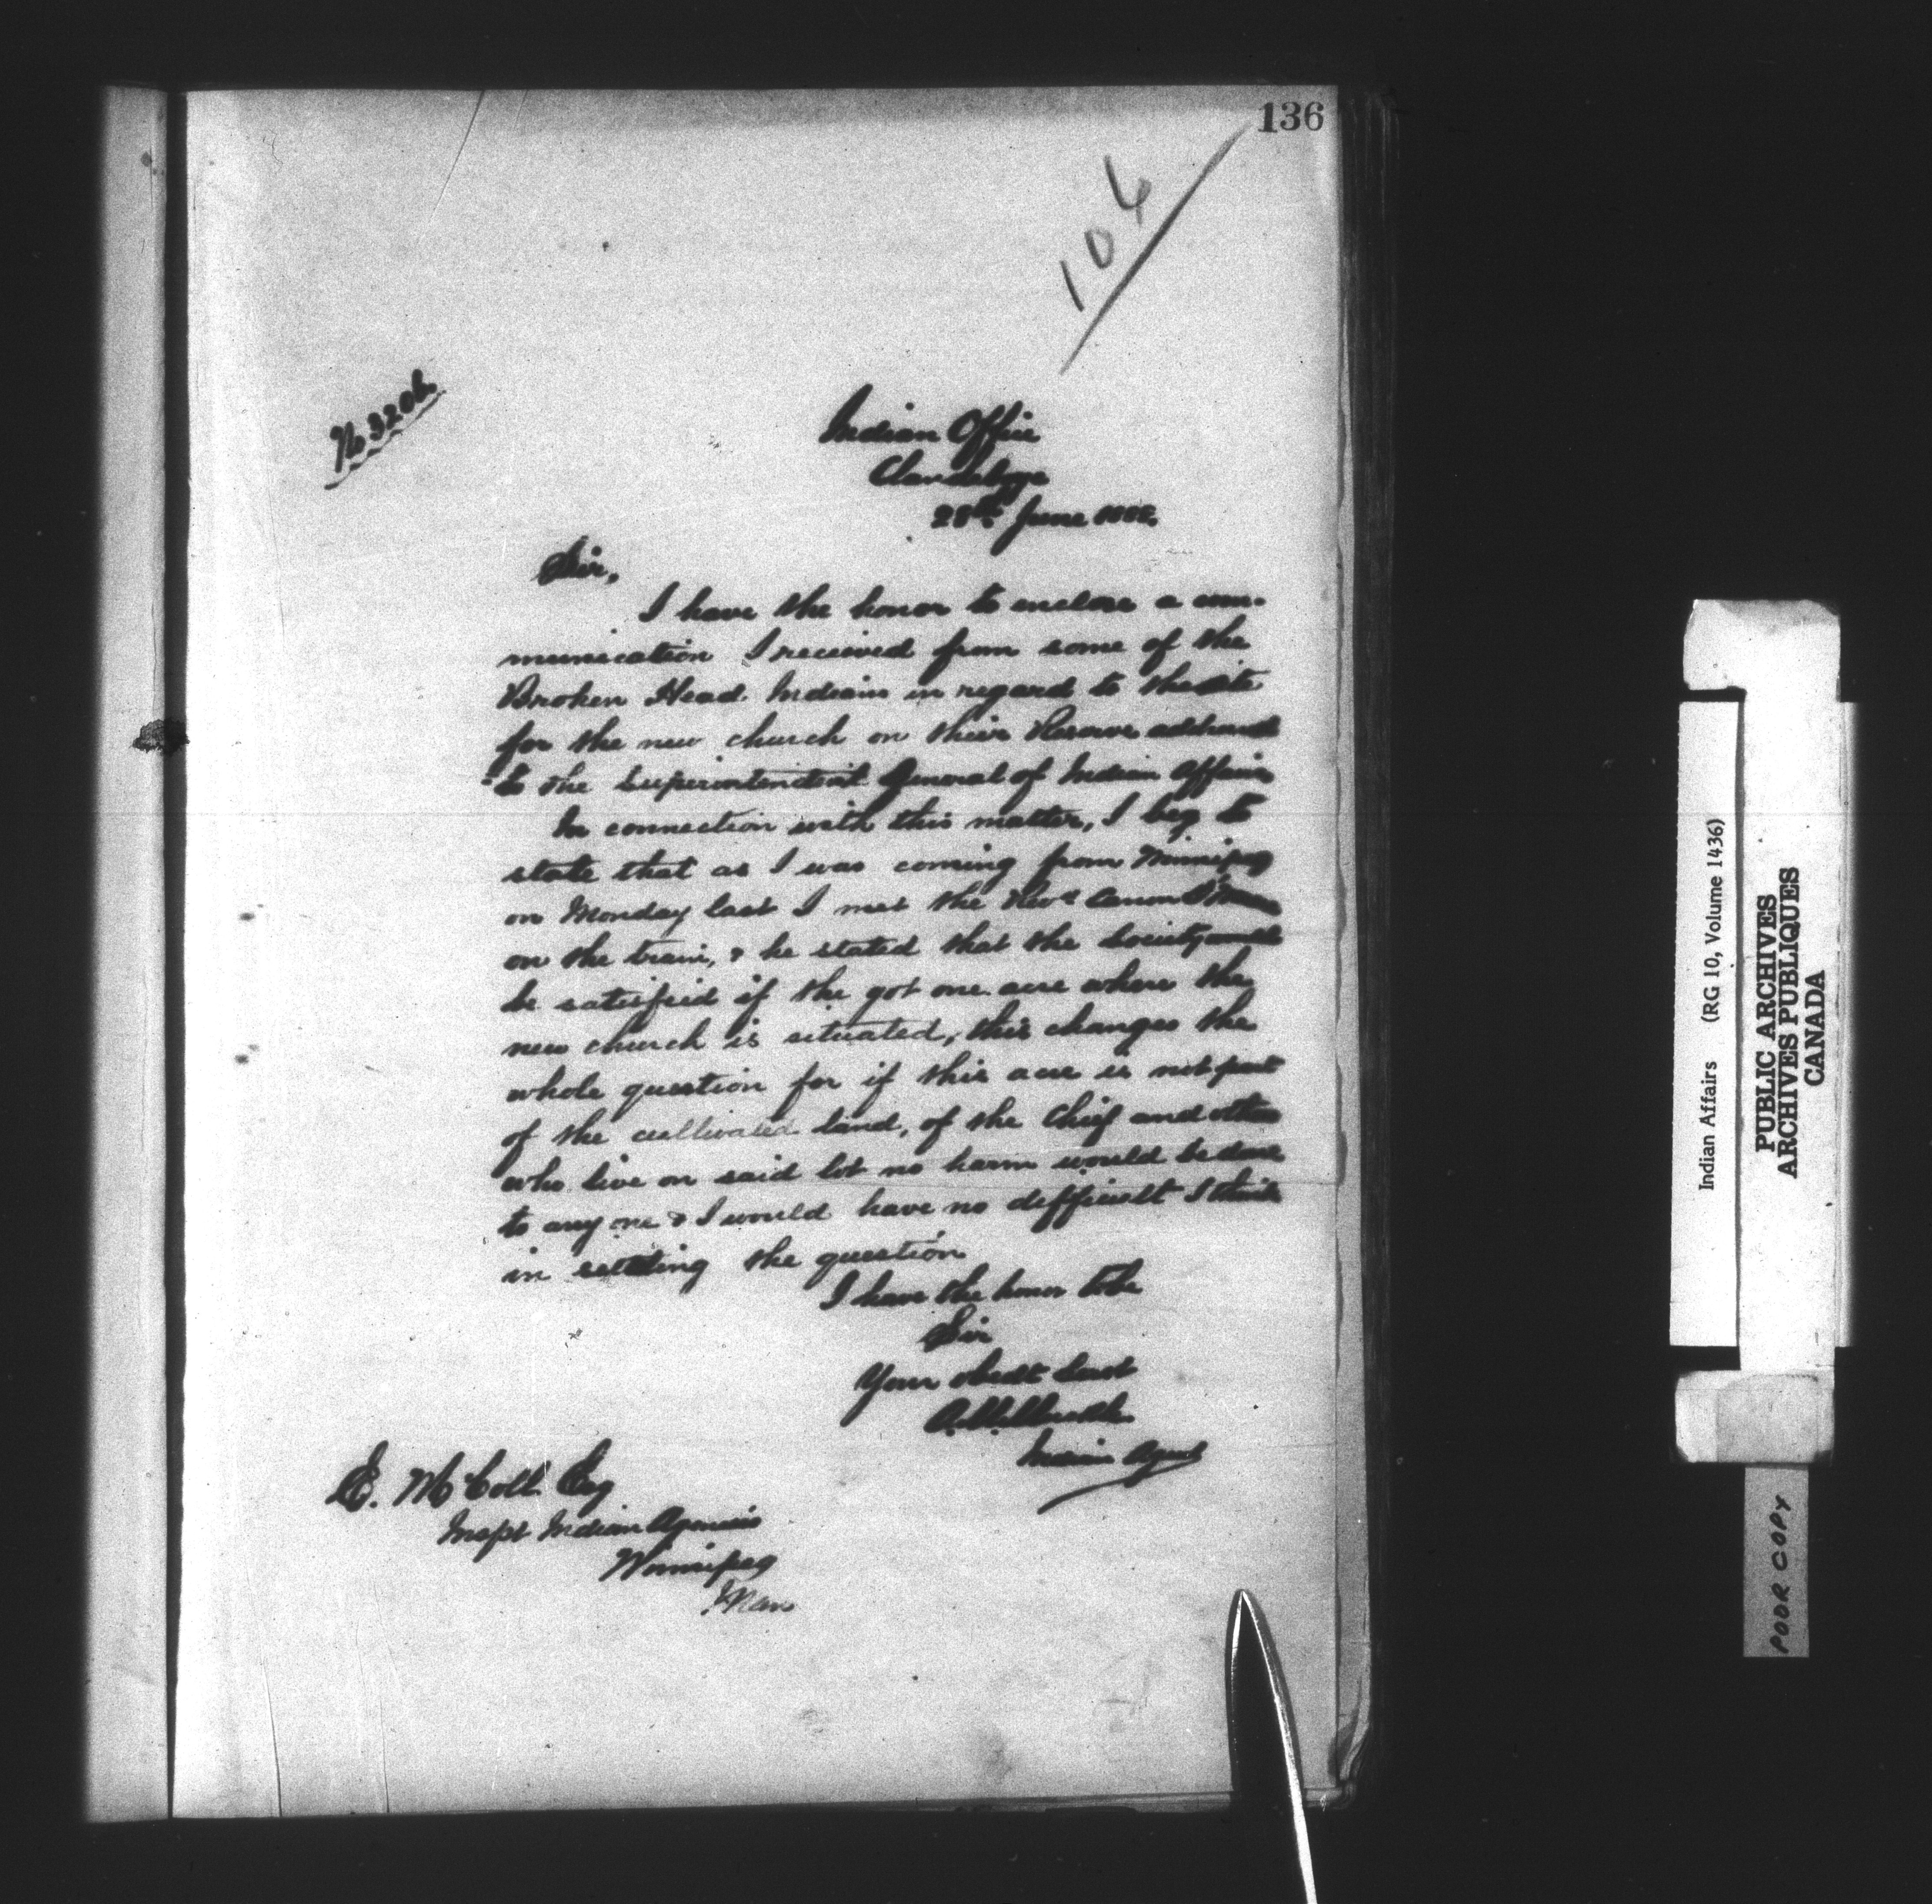 136
104
No 320
Indian Office
Clandeboye
28th June
Sir,
I have the honor to enclose a com-
munication I recieved from some of the
Broken Head Indians in regard to the site
for the new church on their Reserve addressed
to the Superintendent General of Indian Affairs
In connection with this matter, I beg to
state that as I was coming from Winnipeg
on Monday last I met the Revd Canon
on the train, & he stated that the Society would
be satisfied if the got one acre where the
new church is situated, this changes the
whole question for if this acre is not part
of the cultivated land, of the Chief and others
who live on said lot no harm would be done
to any one & I would have no difficult I think
in settling the question
I have the honor to be
Sir
Your obedt Servt
Indian Agent
E. McColl Esq
Inspt Indian Agencies
Winnipeg
Man
Indian Affairs (RG 10, Volume 1436)
PUBLIC ARCHIVES
ARCHIVES PUBLIQUES
CANADA
POOR COPY